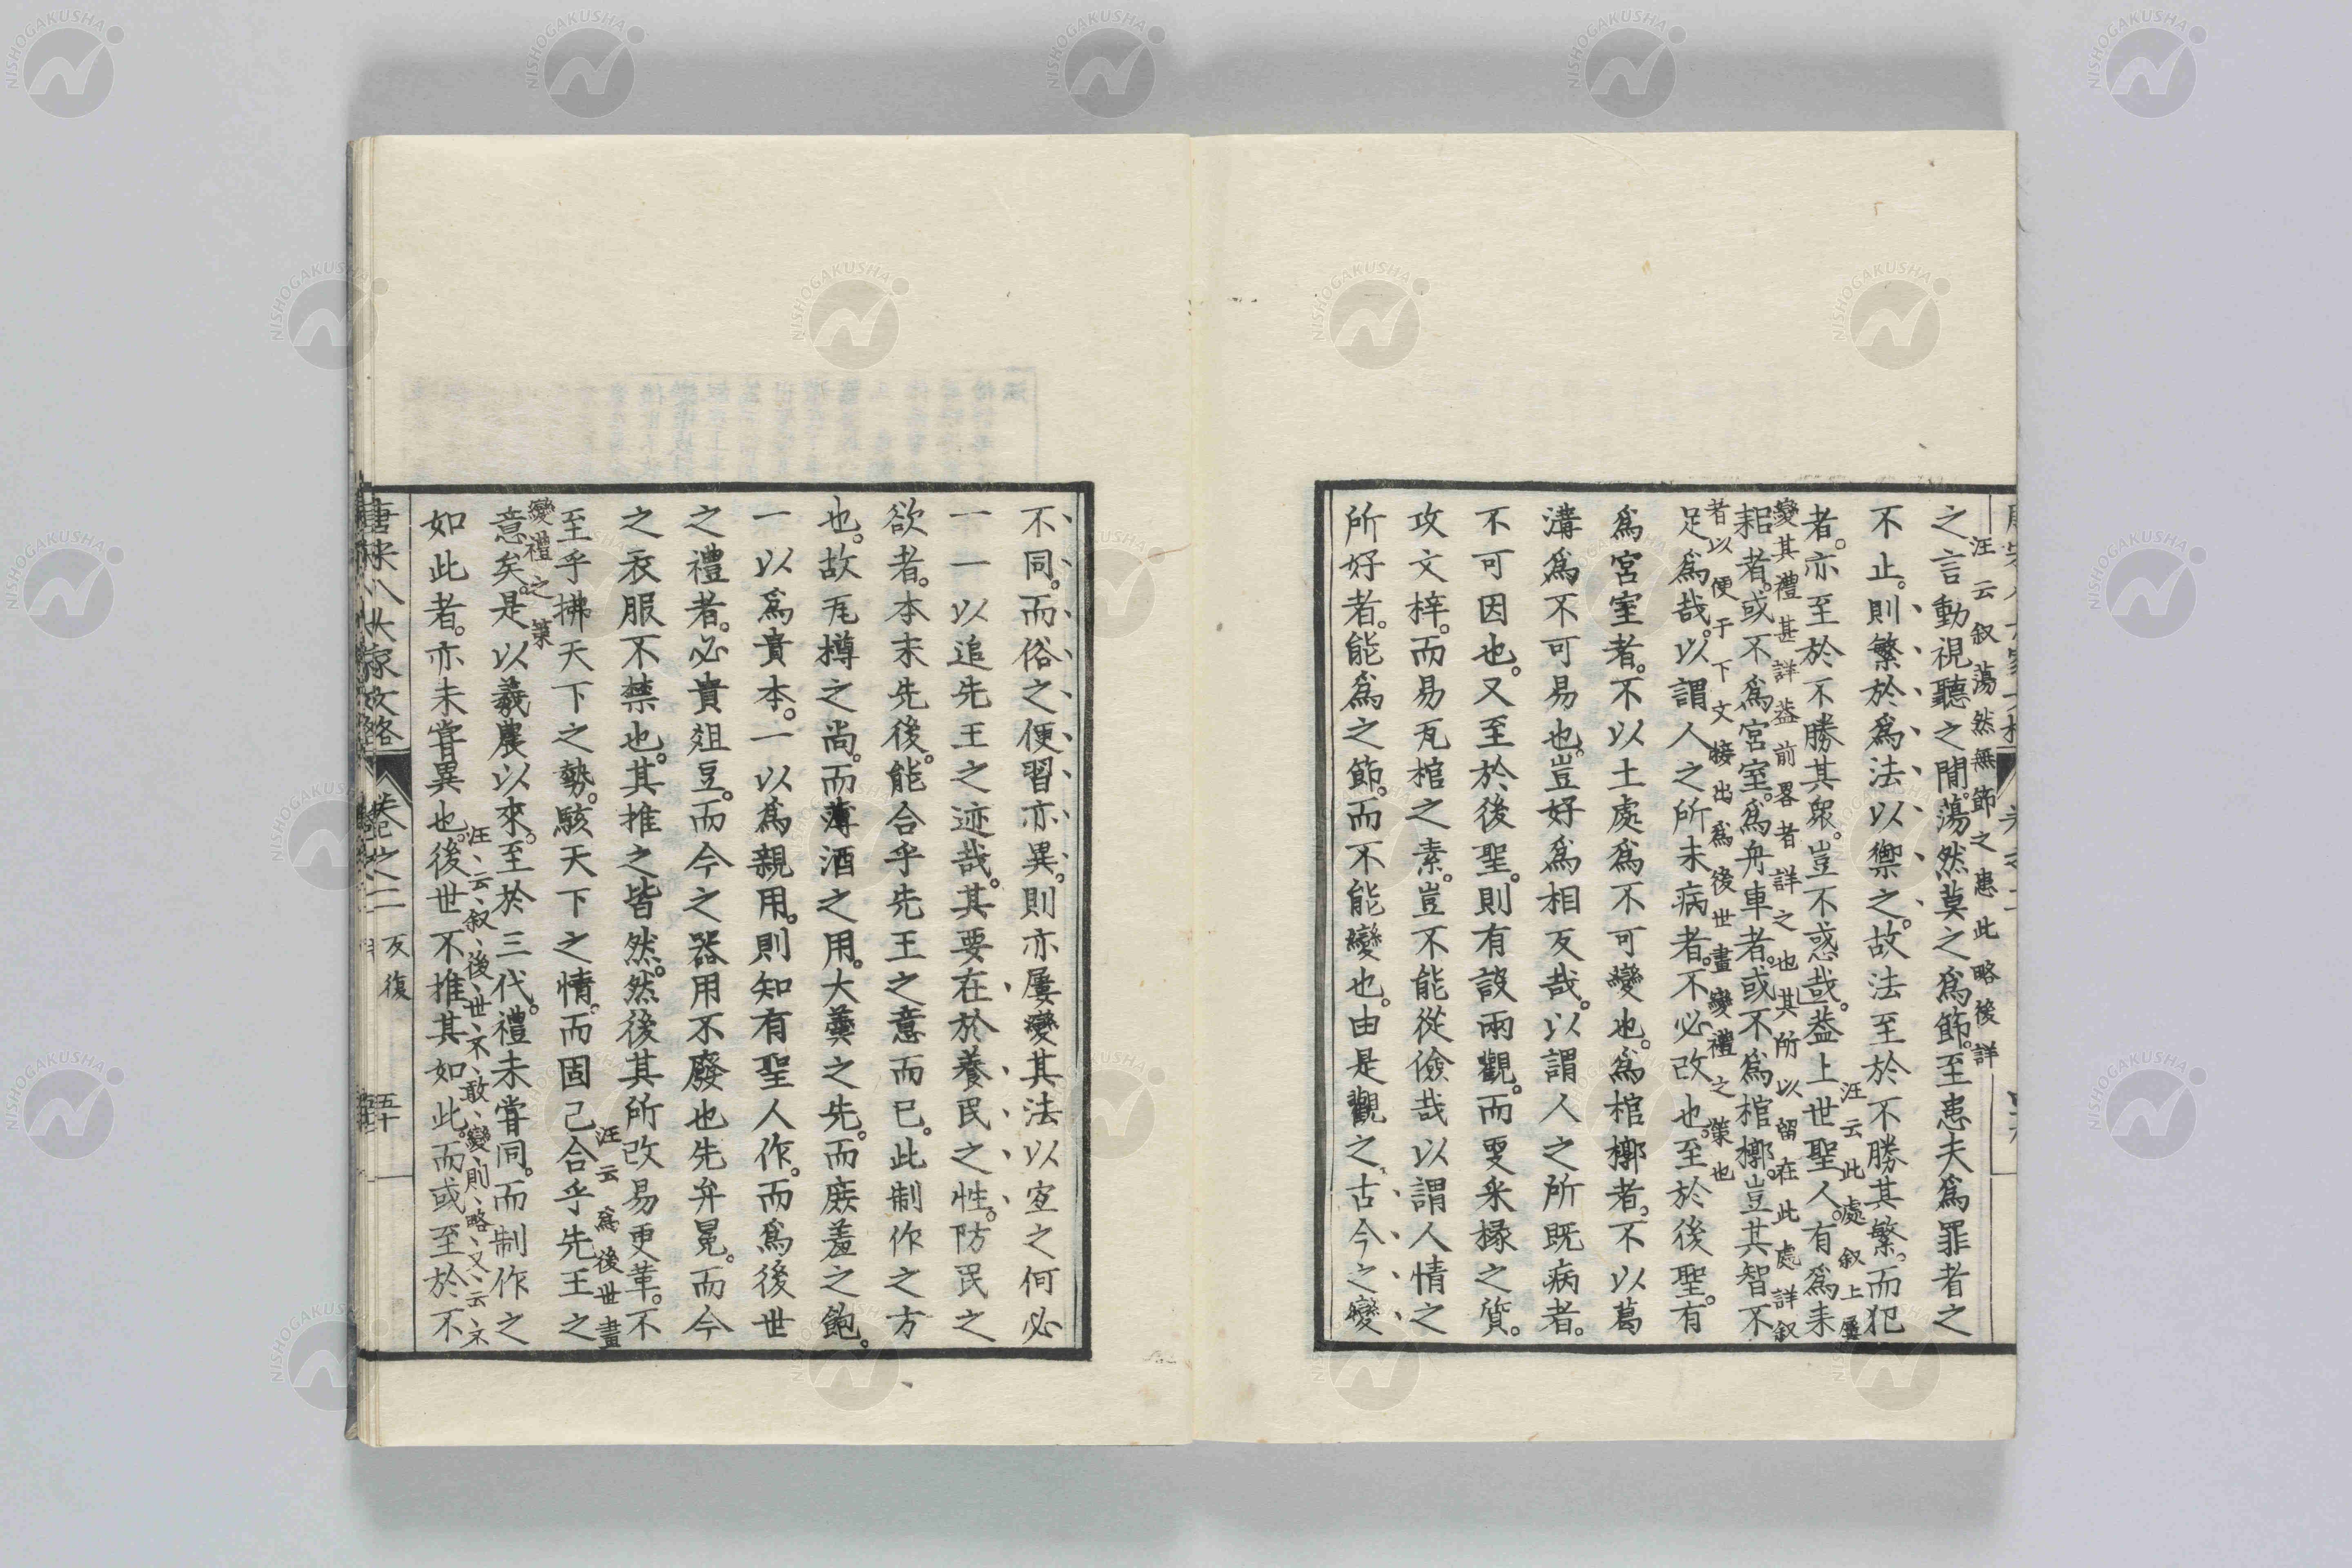 汪云叙蕩然無節之患此略後詳
之言動視聽之間。蕩然莫之爲節。至患夫爲罪者之
不止。則繁於爲法以禦之。故法至於不勝其繁。而犯
汪云此處叙上屢
者。亦至於不勝其衆。豈不惑哉。蓋上世聖人。有爲耒
變其禮甚詳蓋前畧者詳之也其所以留在此處詳叙
耜者。或不爲宮室。爲舟車者。或不爲棺槨。豈其智不
者以便于下文接出爲後世畫變禮之策也
足爲哉。以謂人之所未病者。不必改也。至於後聖。有
爲宮室者。不以土處爲不可變也。爲棺槨者。不以葛
溝爲不可易也。豈好爲相反哉。以謂人之所既病者。
不可因也。又至於後聖。則有設兩觀。而更采椽之質。
攻文梓。而易瓦棺之素。豈不能從儉哉以謂人情之
所好者。能爲之節。而不能變也。由是觀之、古今之變
不同。而俗之便習亦異。則亦屢變其法以宜之何必
一一以追先王之迹哉。其要在於養民之性。防民之
欲者。本末先後。能合乎先王之意而已。此制作之方
也。故瓦樽之尚。而薄酒之用。大羹之先。而庶羞之飽。
一以爲貴本。一以爲親用。則知有聖人作。而爲後世
之禮者。必貴俎豆。而今之器用不廢也先弁冕。而今
之衣服不禁也。其推之皆然。然後其所改易更革。不
汪云爲後世畫
至乎拂天下之勢。駭天下之情。而固已合乎先王之
變禮之策
意矣。是以羲農以來。至於三代。禮未嘗同。而制作之
汪、云、叙、後、世、不、敢、變、則、略、又、云、不
如此者。亦未嘗異也。後世不推其如此。而或至於不
唐宋八大家文格 卷之二 反復 五十